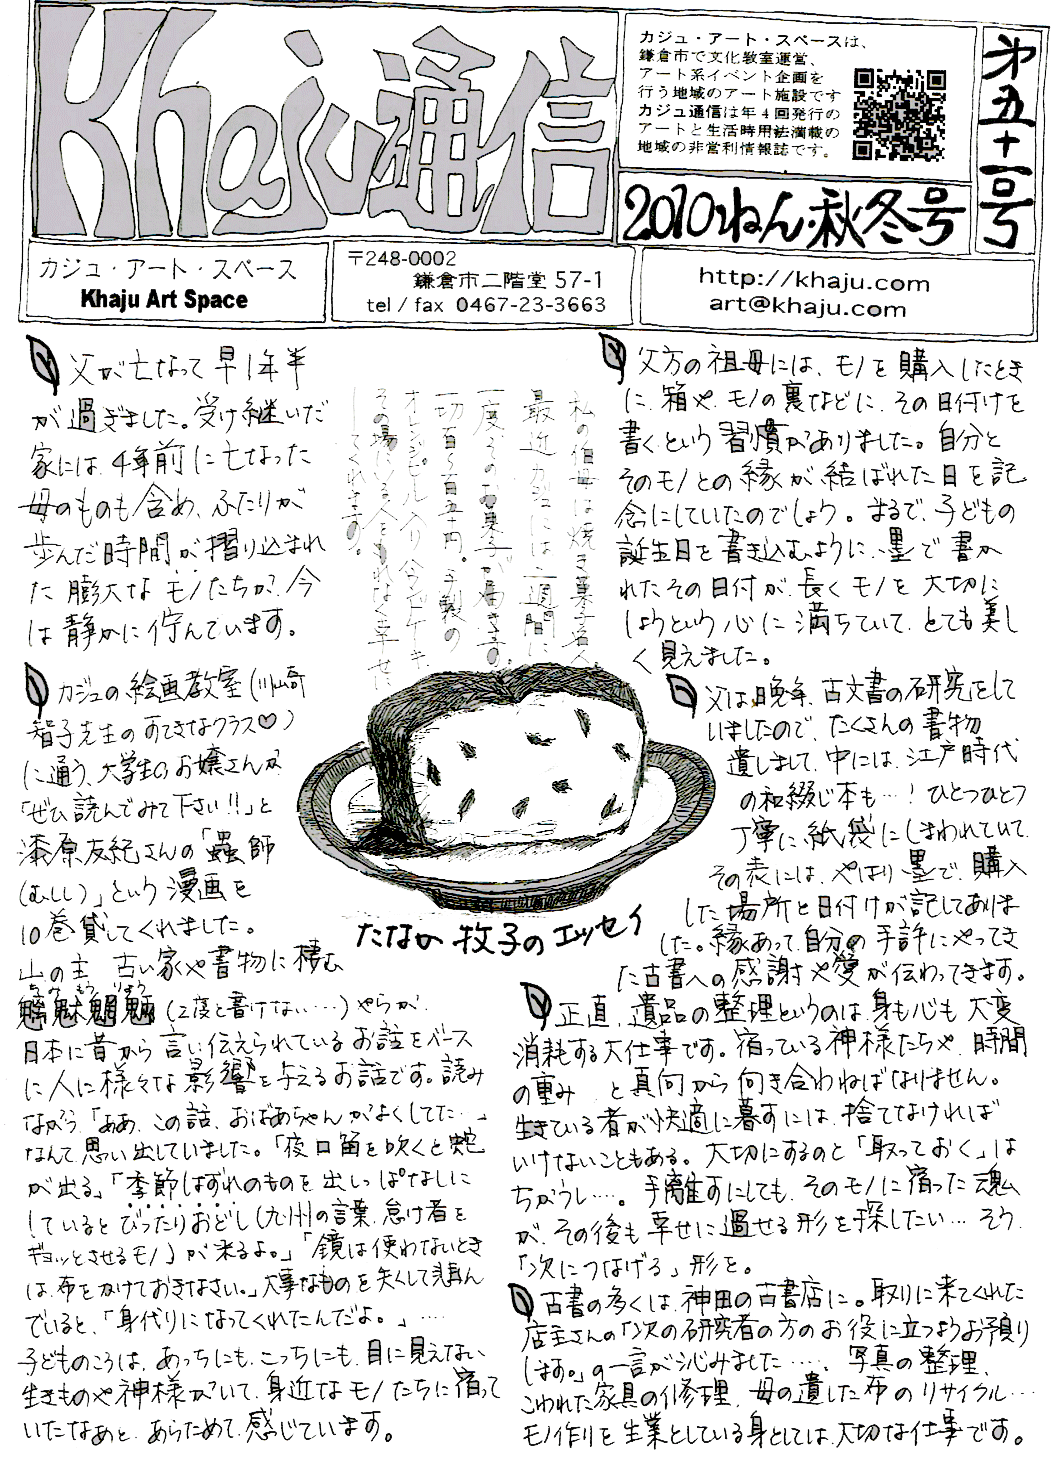 Khaju通信
カジュ・アート・スペースは、
鎌倉市で文化教室運営、
アート系イベント企画を
行う地域のアート施設です
カジュ通信は年4回発行の
アートと生活時用法満載の
地域の非営利情報誌です。
第五十一号
2010ねん・秋冬号
カジュ・アート・スペース
Khaju Art Space
〒248-0002
鎌倉市二階堂 57-1
tel / fax 0467-23-3663
http://khaju.com
art@khaju.com
父が亡なって早1年半
が過ぎました。受け継いだ
家には、4年前に亡なった
母のものも含め、ふたりが
歩んだ時間が摺り込まれ
た膨大なモノたちが、今
は静かに佇んでいます。
カジュの絵画教室(川崎
智子先生のすてきなクラス♡)
に通う、大学生のお嬢さんが
「ぜひ読んでみて下さい!!」と
漆原友紀さんの「蟲師
(むしし)」という漫画を
10巻貸してくれました。
山の主、古い家や書物に棲む
魑魅魍魎(2度と書けない……)やらが、
日本に昔から言い伝えられているお話をベース
に人に様々な影響を与えるお話です。読み
ながら、「ああ、この話、おばあちゃんがよくしてた…」
なんて思い出していました。「夜口笛を吹くと蛇
が出る」「季節はずれのものを出しっぱなしに
しているとびったりおどし(九州の言葉、怠け者を
ギョッとさせるモノ)が来るよ。」「鏡は使わないとき
は、布をかけておきなさい。」大事なものを失くして悲しん
でいると、「身代りになってくれたんだよ。」……
子どものころは、あっちにも、こっちにも、目に見えない
生きものや神様がいて、身近なモノたちに宿って
いたなあと、あらためて、感じています。
私の伯母は焼き菓子名人。
最近カジュには二週間に
一度そのお菓子が届きます。
一切百〜百五十円。手製の
オレンジピール入りパウンドケーキ、
その場にいる人をもれなく幸せに
してくれます。
たなか牧子のエッセイ
父方の祖母には、モノを購入したとき
に、箱や、モノの裏などに、その日付けを
書くという習慣がありました。自分と
そのモノとの縁が結ばれた日を記
念にしていたのでしょう。まるで、子どもの
誕生日を書き込むように、墨で書か
れたその日付が、長くモノを大切に
しようという心に満ちていて、とても美し
く見えました。
父は晩年、古文書の研究をして
いましたので、たくさんの書物
遺しまして、中には、江戸時代
の和綴じ本も…!ひとつひとつ
丁寧に紙袋にしまわれていて、
その表には、やはり墨で、購入
した場所と日付けが記してありま
した。縁あって、自分の手許にやってき
た古書への感謝や愛が伝わってきます。
正直、遺品の整理というのは、身も心も大変
消耗する大仕事です。宿っている神様たちや、時間
の重み と真向から向き合わねばなりません。
生きている者が快適に暮すには、捨てなければ
いけないこともある。大切にするのと「取っておく」は
ちがうし…。手離すにしても、そのモノに宿った魂
が、その後も幸せに過せる形を探したい…そう、
「次につなげる」形を。
古書の多くは、神田の古書店に。取りに来てくれた
店主さんの「次の研究者の方のお役に立つようお預り
します。」の一言が沁みました……。写真の整理、
こわれた家具の修理、母の遺した布のリサイクル…
モノ作りを生業としている身としては、大切な仕事です。